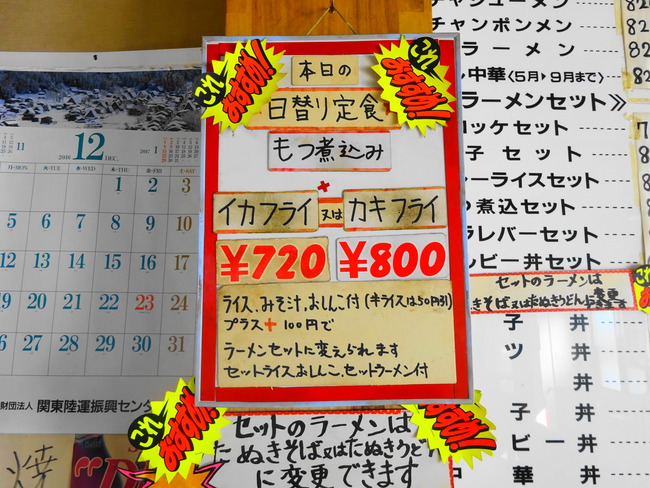 11
2016
12
DEC.
2017 1
水・WED
木・THU
金・FRI
土・SAT
1 2 3
5 6 7 8 9 10
12 13 14 15 16 17
19 20 21 22 23 24
26 27 28 29 30 31
財団法人 関東陸運振興セン
焼
これ
おすすめ!!
これ
おすすめ!!
本日の
日替り定食
もつ煮込み
+
イカフライ 又は カキフライ
¥720 ¥800
ライス、みそ汁、おしんこ付(半ライスは50円引)
プラス+100円で
ラーメンセットに変えられます
セットライス、おしんこ、セットラーメン付
これ
おすすめ!!
おすすめ!!
セットのラーメンは
たぬきそば又はたぬきうどん
に変更できます
チャンポンメン
ラーメン
中華〈5月▶9月まで〉
ラーメンセット》
ロッケセット
子セット
ーライスセット
煮込セット
ラレバーセット
ルビー丼セット
セットのラーメンは
きそば又はたぬきうどんに変更
子丼
ツ丼
丼
子丼
ビー丼
中華丼